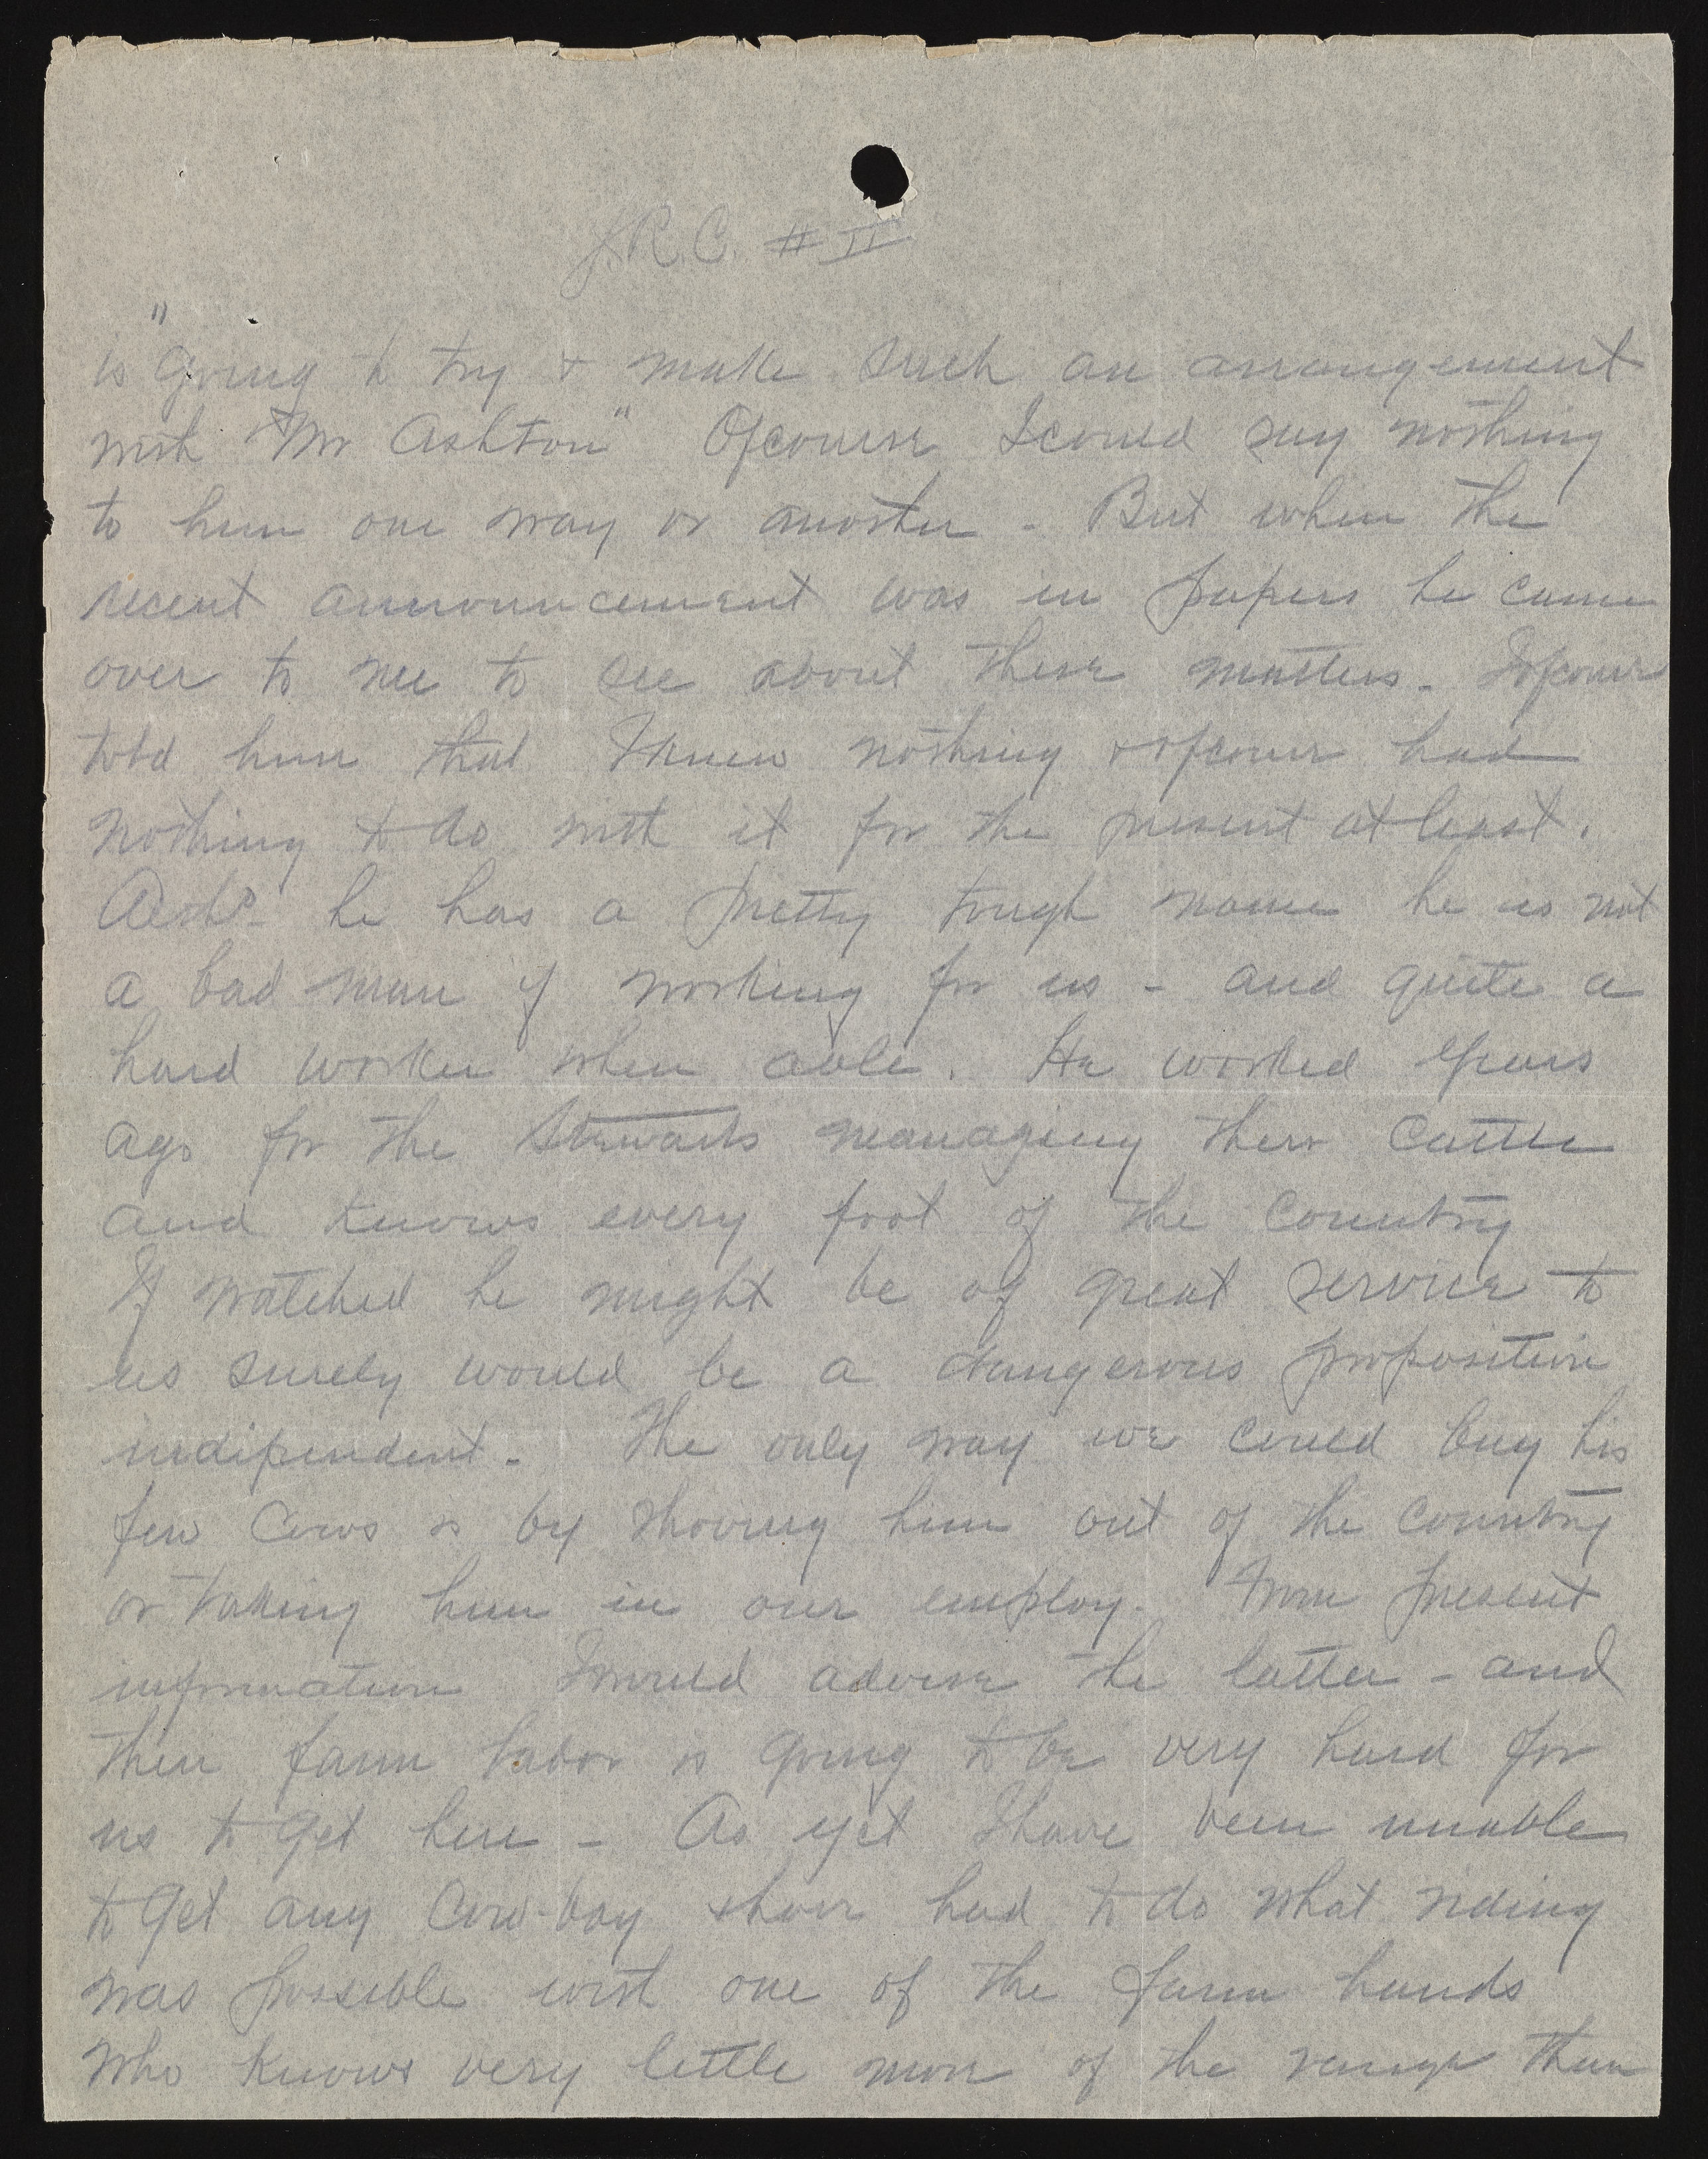 J.R.C. # II
is "Going to try & make such an arrangement
with Mr Ashton" Ofcourse I could say nothing
to him one way or another - But when the
recent announcement was in papers he came
over to me to see about these matters - I ofcourse
told him that I knew nothing & ofcourse had
nothing to do with it for the present at least.
he has a pretty tough name he is not
a bad man if working for us - and quite a
hard worker when able. He worked years
ago for the Stewarts managing their cattle
and knows every foot of the country
If watched he might be of great service to
us surely would be a dangerous proposition
indipendent - The only way we could buy his
few cows is by shoving him out of the country
or taking him in our employ. From present
information I would advise the latter - and
then farm labor is going to be very hard for
us to get here - As yet I have been unable
to get any Cow-boy & have had to do what riding
was possible with one of the farm hands
who knows very little more of the range than